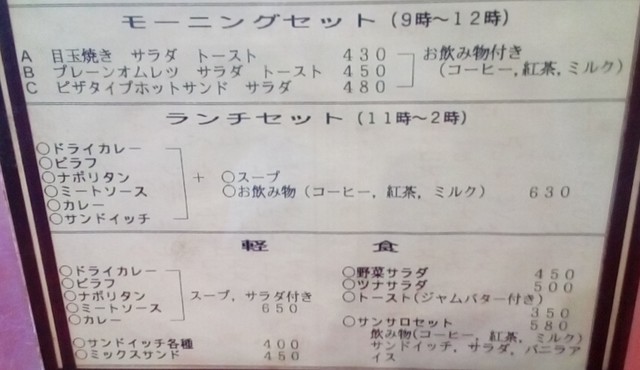 モーニングセット(9時～12時)
A 目玉焼き サラダ トースト 430
B プレーンオムレツ サラダ トースト 450
C ピザタイプホットサンド サラダ 480
お飲み物付き
(コーヒー,紅茶,ミルク)
ランチセット(11時～2時)
○ドライカレー
○ピラフ
○ナポリタン
○ミートソース
○カレー
○サンドイッチ
+
○スープ
○お飲み物(コーヒー,紅茶,ミルク) 630
軽食
○ドライカレー
○ピラフ
○ナポリタン
○ミートソース
○カレー
スープ,サラダ付き
650
○サンドイッチ各種 400
○ミックスサンド 450
○野菜サラダ 450
○ツナサラダ 500
○トースト(ジャムバター付き)
350
○サンサロセット 580
飲み物(コーヒー,紅茶,ミルク)
サンドイッチ,サラダ,バニラア
イス